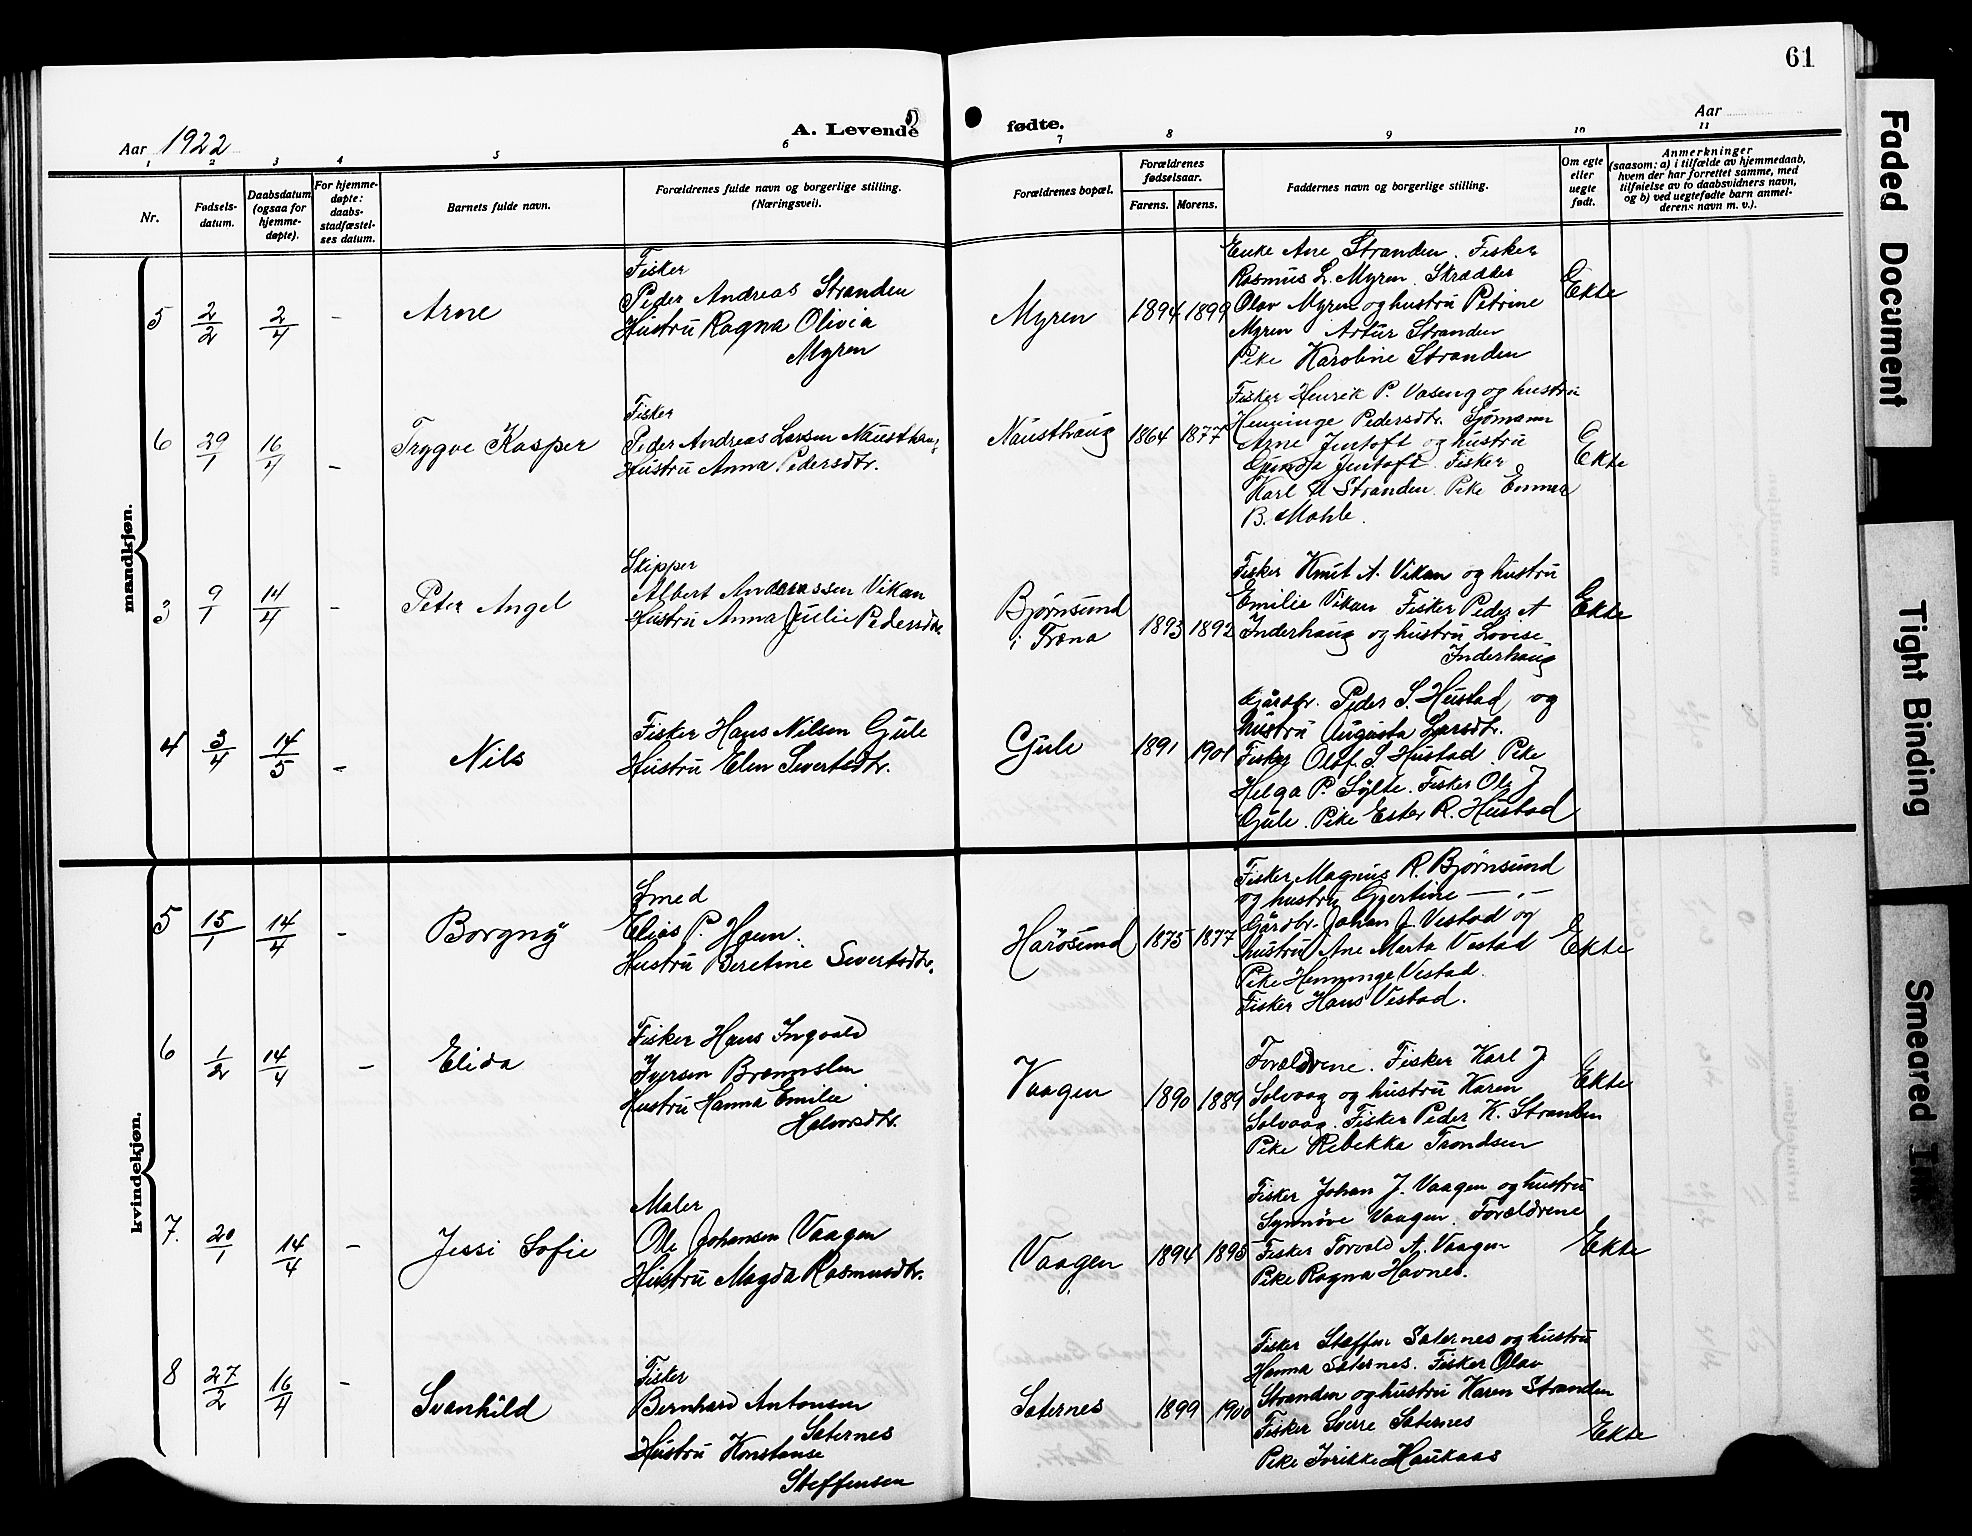 61
Aar 1922
A. Levende
fødte.
Aar
1 2 3 4 5 6 7 8 9 10 11
Nr.
Fødsels-
datum.
Daabsdatum
(ogsaa for
hjemme-
døpte).
For hjemme-
døpte:
daabs-
stadfæstel-
ses datum.
Barnets fulde navn.
Forældrenes fulde navn og borgerlige stilling.
(Næringsvei).
Forældrenes bopæl.
Forældrenes
fødselsaar.
Farens. Morens.
Faddernes navn og borgerlige stilling.
Om egte
eller
uegte
født.
Anmerkninger
(saasom: a) i tilfælde av hjemmedaab,
hvem der har forrettet samme, med
tilføielse av to daabsvidners navn,
og b) ved uegtefødte barn anmel-
derens navn m. v.).
mandkjøn.
5 2/2 2/4 - Arne
Fisker
Peder Andreas Stranden
Hustru Ragna Olivia
Myren
Myren 1894 1899
Enke Ane Stranden. Fisker
Rasmus L. Myren. Skrædder
Olav Myren og hustru Petrine
Myren Artur Stranden
Pike Karoline Stranden
Ekte
6 29/1 16/4 - Trygve Kasper
Fisker
Peder Andreas Larsen Nausthaug
Hustru Anna Pedersdtr.
Nausthaug 1864 1877
Fisker Henrik P. Vaseng og hustru
Henninge Pedersdtr. Sjømann
Arne Jentoft og hustru
Gunda Jentoft. Fisker
Karl A Stranden. Pike Emma
B. Mohle.
Ekte
3 9/1 14/4 - Peter Angel
Skipper
Albert Andreassen Vikan
Hustru Anna Julie Pedersdtr
Bjørnsund
i Fræna
1893 1892
Fisker Knut A. Vikan og hustru
Emilie Vikan Fisker Peder A
Inderhaug og hustru Lovise
Inderhaug
Ekte
4 3/4 14/5 - Nils
Fisker Hans Nilsen Gule
Hustru Elen Sivertsdtr.
Gule 1891 1901
Gårdbr. Peder S. Hustad og
hustru Augusta Larsdtr.
Fisker Olaf. S. Hustad. Pike
Helga P. Sylte. Fisker Ole J
Gule. Pike Ester R. Hustad
kvindekjøn.
5 15/1 14/4 - Borgny
Smed
Elias P. Havn.
Hustru Beretine Sivertsdtr.
Harøsund 1875 1877
Fisker Magnus R. Bjørnsund
og hustru Gjertine — „ —
Gårdbr. Johan J. Vestad og
hustru Ane Marta Vestad
Pike Henninge Vestad.
Fisker Hans Vestad.
Ekte
6 1/2 14/4 - Elida
Fisker Hans Ingvald
Iversen Brennslen
Hustru Hanna Emilie
Halvorsdtr.
Vaagen 1890 1889
Forældrene. Fisker Karl J
Solvaag og hustru Karen
Solvaag. Fisker Peder K. Stranden
Pike Rebekka Trondsen
Ekte
7. 20/1 14/4 - Jessi Sofie
Maler
Ole Johansen Vaagen
Hustru Magda Rasmusdtr.
Vaagen 1894 1895
Fisker Johan J. Vaagen og hustru
Synnøve Vaagen. Forældrene
Fisker Torvald A. Vaagen
Pike Ragna Havnes.
Ekte
8 27/2 16/4 - Svanhild
Fisker
Bernhard Antonsen
Saternes
Hustru Konstanse
Steffensen
Saternes 1899 1900
Fisker Steffen Saternes og hustru
Hanna Saternes. Fisker Olav
Stranden og hustru Karen Stranden
Fisker Sverre Saternes
Pike Haukaas
Ekte
Faded Document
Tight Binding
Smeared Ink